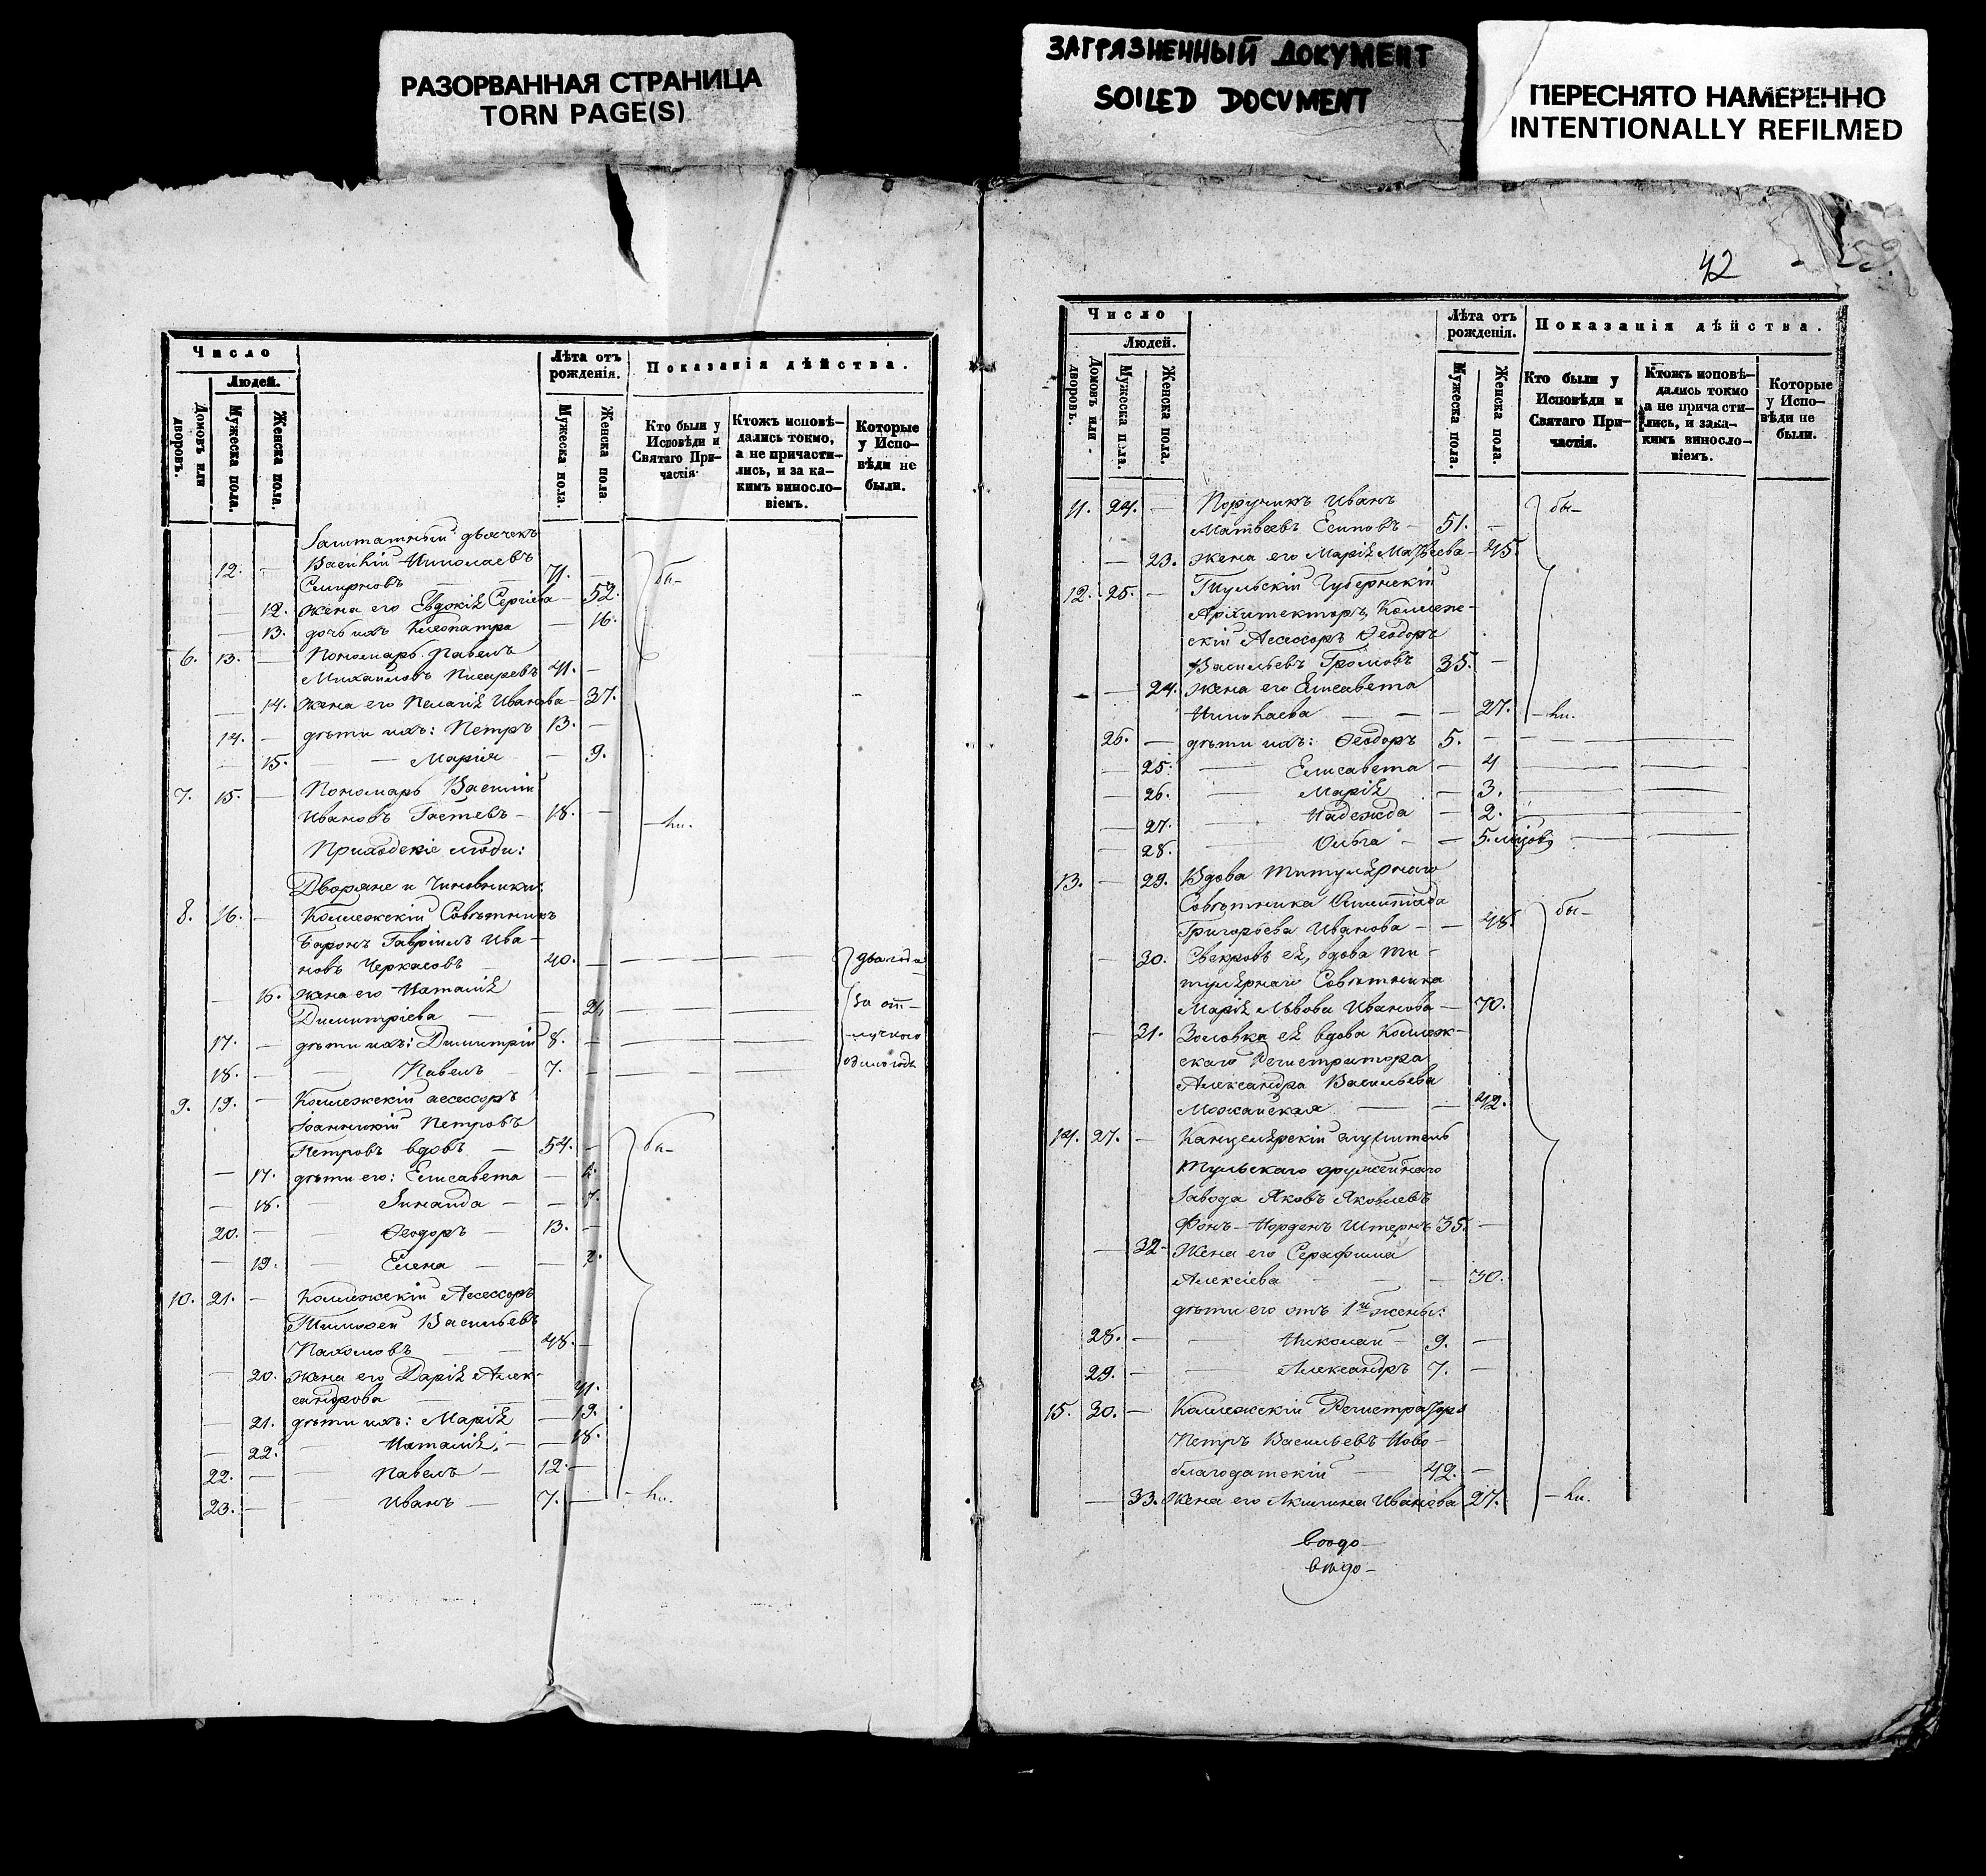 РАЗОРВАННАЯ СТРАНИЦА
TORN PAGE(S)
ЗАГРЯЗНЕННЫЙ ДОКУМЕНТ
SOILED DOCUMENT
ПЕРЕСНЯТО НАМЕРЕННО
INTENTIONALLY REFILMED
Число
Людей.
Домовъ или дворовъ.
Мужеска пола.
Женска пола.
Лѣта отъ рожденія.
Мужеска пола.
Женска пола.
Показанія дѣйства.
Кто были у Исповѣди и Святаго При-частія.
Ктожъ исповѣ-дались токмо, а не причасти-лись, и за ка-кимъ винословіемъ.
Которые у Испо-вѣди не были.
Заштатный дьячекъ
12. — Василій Николаевъ
Смирновъ — — 71. —
— 12. жена его Евдокія Сергіева — 52.
— 13. дочь ихъ Клеопатра — 16.
6. 13. — Пономарь Павелъ
Михаиловъ Писаревъ 41. —
— 14. жена его Пелагія Иванова — 37.
14. — дѣти ихъ: Петръ 13. —
— 15. — Марія — 9.
7. 15. — Пономарь Василій
Ивановъ Гастевъ — 18. —
Приходскіе люди:
Дворяне и Чиновники:
8. 16. — Коллежскій Совѣтникъ
Баронъ Гавріилъ Ива-
новъ Черкасовъ 40. —
— 16. жена его Наталія
Димитріева — —
17. — дѣти ихъ: Димитрій 8. —
18. — — Павелъ 7. —
9. 19. — Коллежскій асессоръ
Іоанникій Петровъ
Петровъ вдовъ — 54. —
— 17. дѣти его: Елисавета —
— 18. — Зинаида — — 7.
20. — — Ѳеодоръ — 13. —
— 19. — Елена — —
10. 21. — Коллежскій Асессоръ
Тимоѳей Васильевъ
Пахомовъ — — 48. —
— 20. жена его Дарія Алек-
сандрова — — 41.
— 21. дѣти ихъ: Марія — 19.
— 22. — Наталія — — 18.
22. — — Павелъ — 12. —
23. — — Иванъ — 7. —
42
Число
Людей.
Домовъ или дворовъ.
Мужеска пола.
Женска пола.
Лѣта отъ рожденія.
Мужеска пола.
Женска пола.
Показанія дѣйства.
Кто были у Исповѣди и Святаго При-частія.
Ктожъ исповѣ-дались токмо а не причасти-лись, и зака-кимъ винословіемъ.
Которые у Испо-вѣди не были.
11. 24. — Поручикъ Иванъ
Матвѣевъ Есиповъ — 51. — бы-
— 23. жена его Марія Матвѣева — 45.
12. 25. — Тульскій Губернскій
Архитекторъ, Коллеж-
скій Асессоръ Ѳеодоръ
Васильевъ Громовъ 35. —
— 24. жена его Елисавета
Николаева — — — 27. — ли.
26. — дѣти ихъ: Ѳеодоръ 5. —
— 25. — Елисавета — 4
— 26. — Марія — 3.
— 27. — Надежда — 2.
— 28. — Ольга — — 5. мѣсяцовъ
13. — 29. Вдова Титулярнаго
Совѣтника
Григорьева Иванова — — 48. бы-
— 30. Свекровь ея, вдова Ти-
тулярнаго Совѣтника
Марія Львова Иванова — 70.
— 31. Золовка ея вдова Коллеж-
скаго Регистратора
Александра Васильева
Можайская — — 42.
14. 27. — Канцелярскій служитель
Тульскаго оружейнаго
Завода Яковъ Яковлевъ
Фонъ-Норденъ Штернъ 35. —
— 32. Жена его Серафима
Алексіева — — — 30.
дѣти его отъ 1й жены:
28. — — Николай — 9. —
29. — — Александръ 7. —
15. 30. — Коллежскій Регистраторъ
Петръ Васильевъ Ново-
благодатскій — 42. —
— 33. Жена его Акилина Иванова 27. — ли.